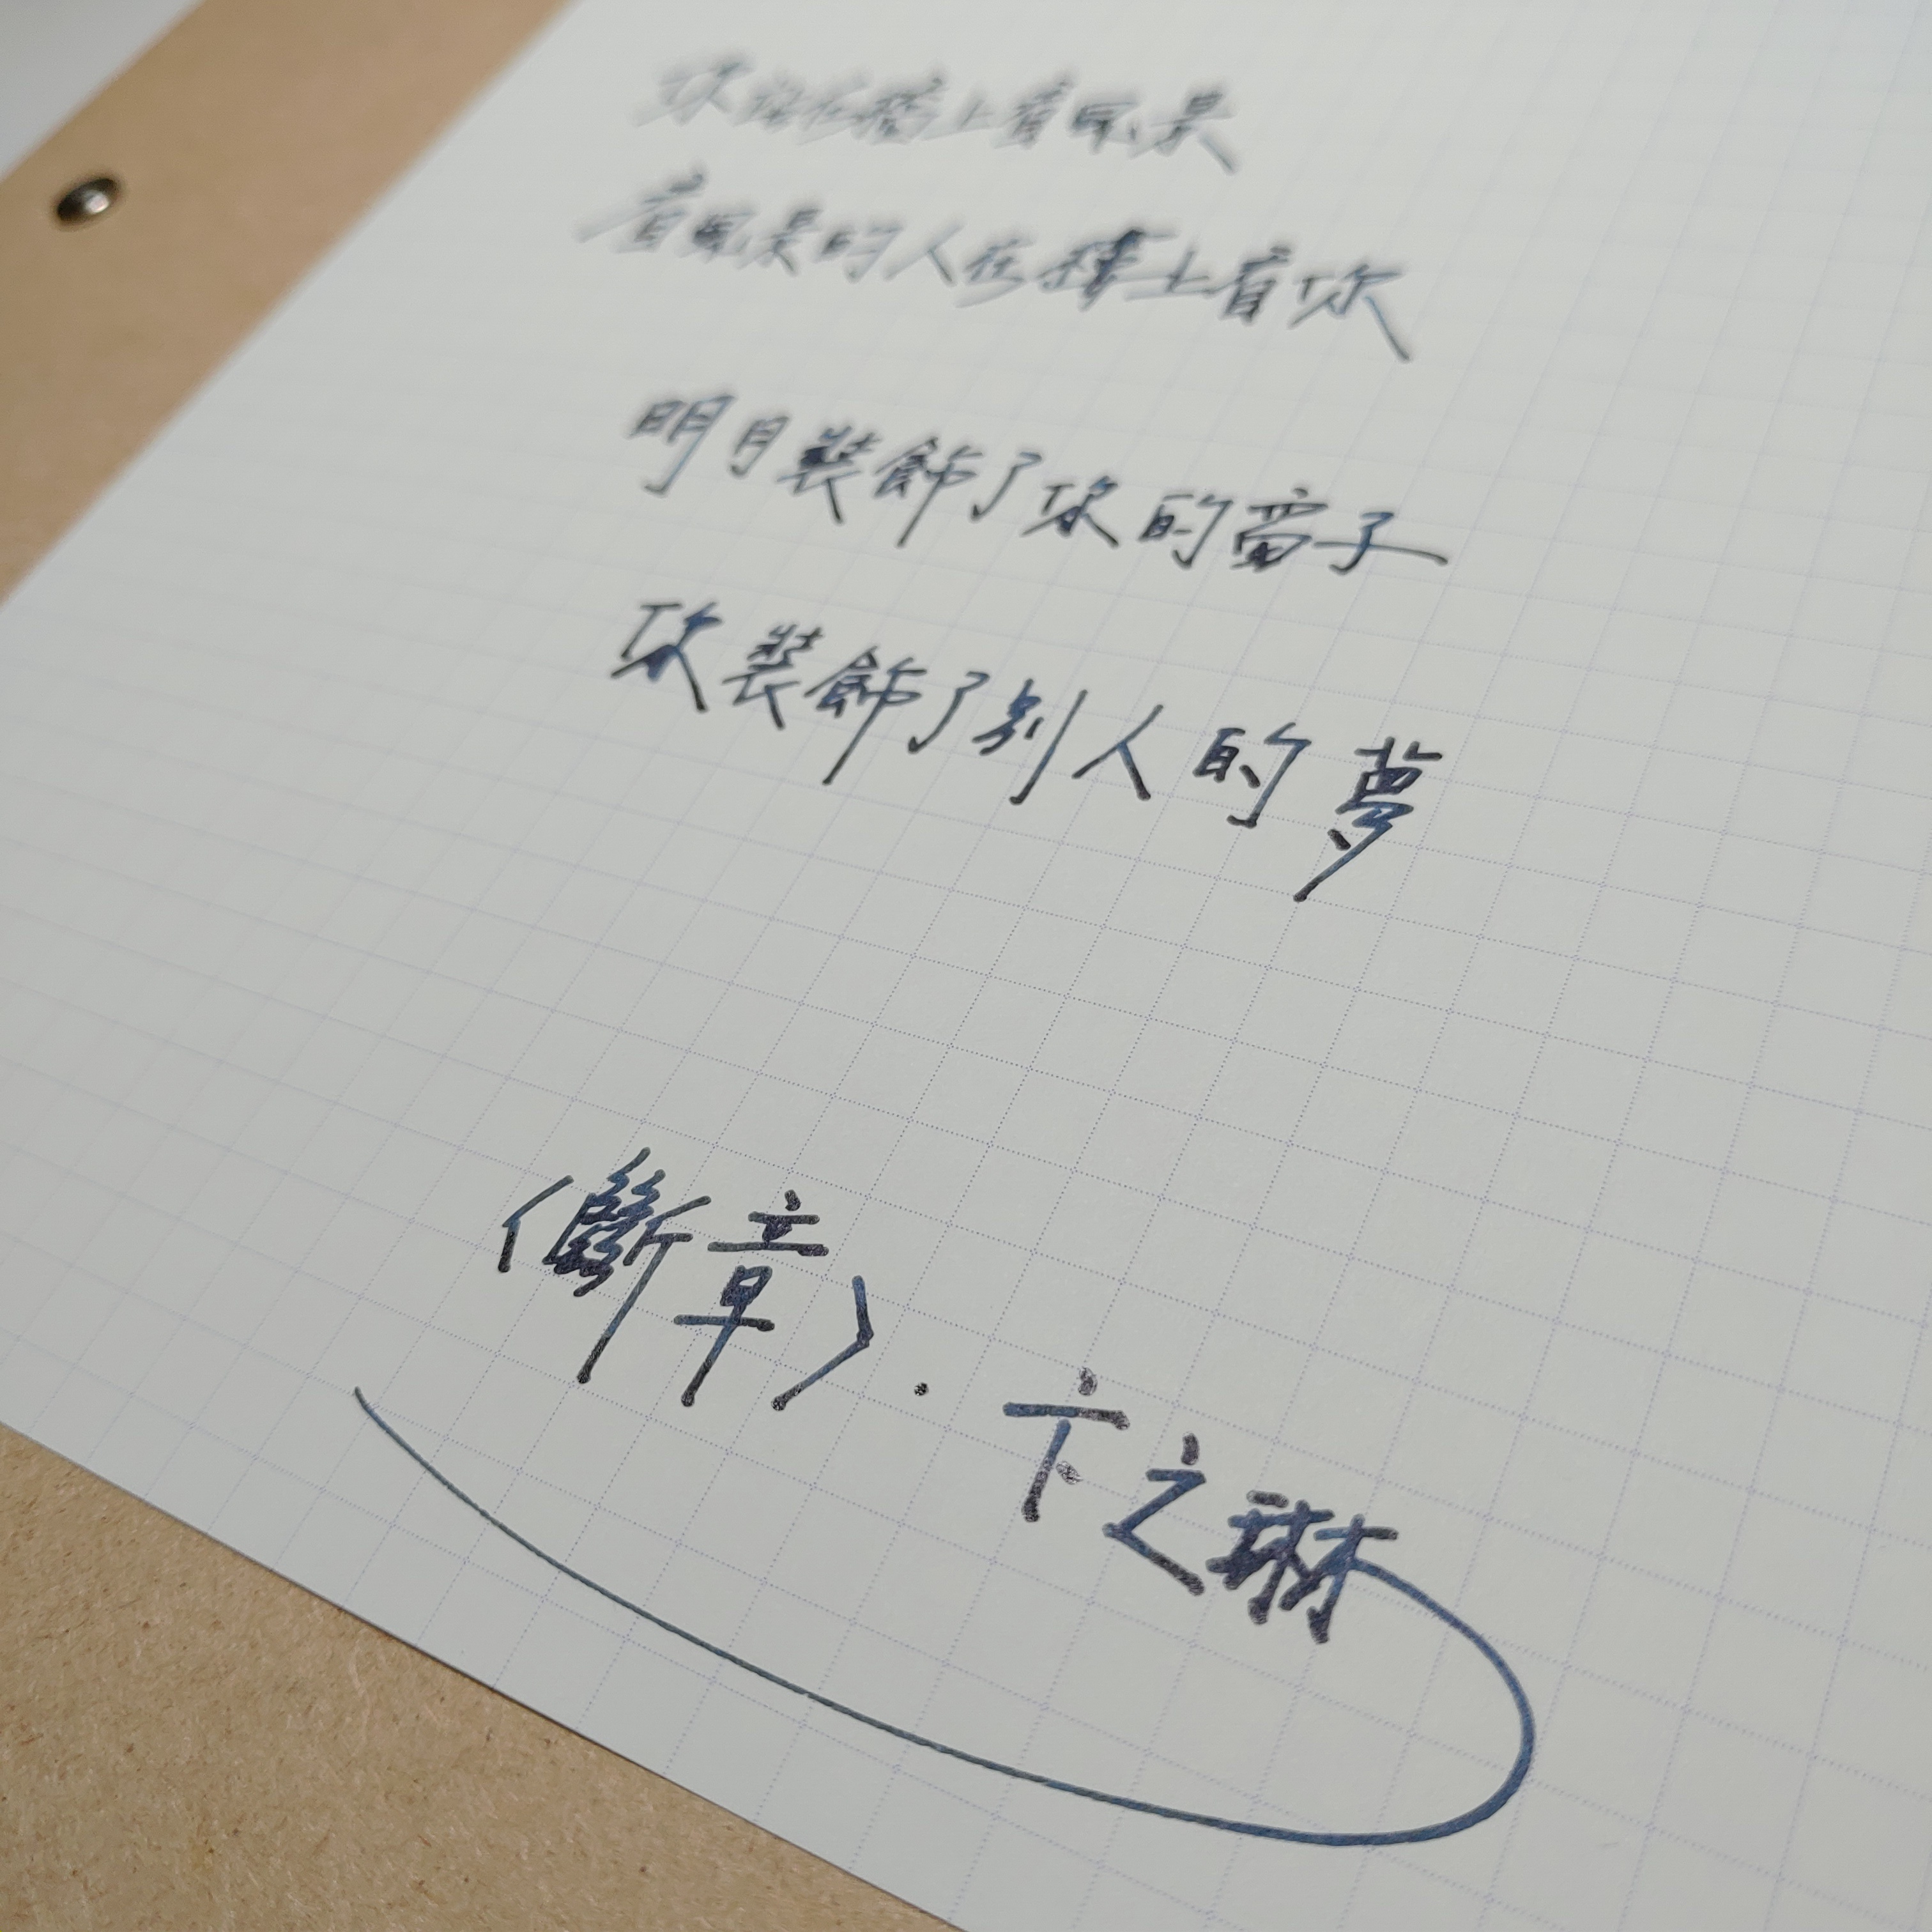 你站在橋上看風景
看風景的人在樓上看你
明月裝飾了你的窗子
你裝飾了別人的夢
〈斷章〉· 卞之琳